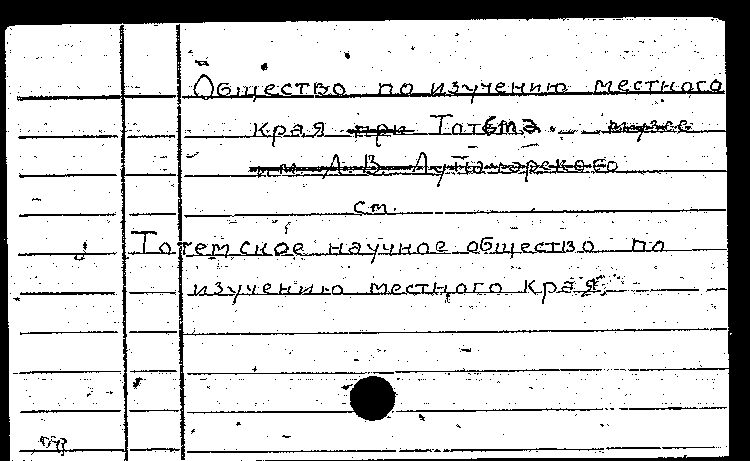 Общество по изучению местного
края при Тотема. музее
им А. В. Луначарского
см.
Тотемское научное общество по
изучению местного края.